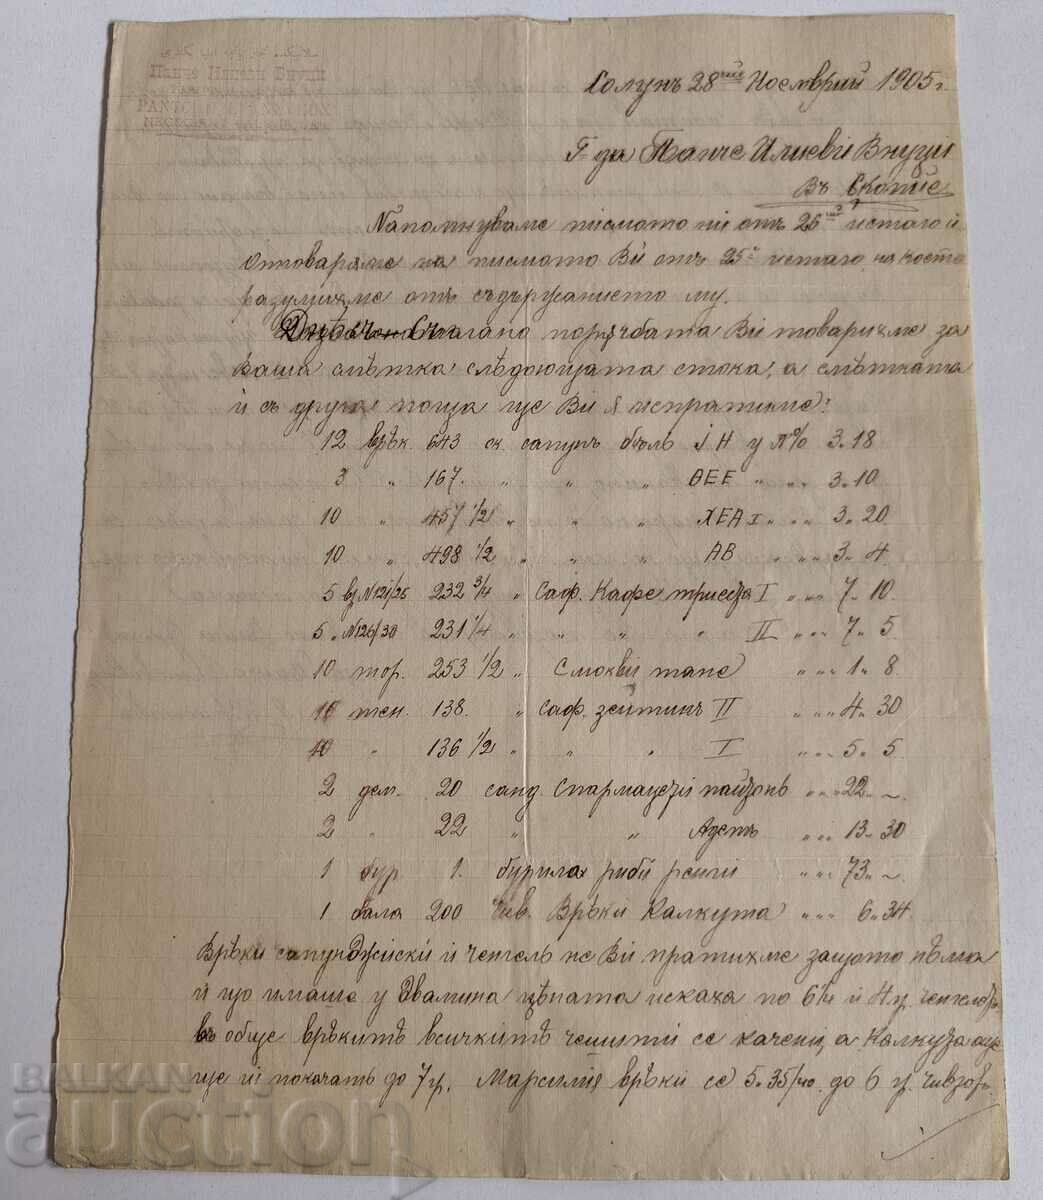 Панчо Илиеви Внуци
Солунъ 28ий Ноемврий 1905 г.
Г-да Панче Илиеви Внуци
Въ Скопие
Напомнуваме писмото ни отъ 26ий истаго и
Отговаряме на писмото Ви отъ 25й истаго, на което
разумихме отъ съдържанието му.
Съгласно поръчбата Ви товарихме за
Ваша смѣтка слѣдующата стока, а смѣтката
й съ другая поща ще Ви я испратиме:
12 врѣк. 643 ок. сапунъ бѣлъ ІН у п% 3.18
3 " 167. " " " ΘΕΕ " " " 3.10
10 " 457 1/2 " " " ΧΕΑ I " " " 3.20
10 " 498 1/2 " " " АВ " " " 3.4
5 вз №121/25 232 3/4 " Саф. Кафе триеза I " " " 7.10
5 " №126/30 231 1/4 " " " " II " " " 7.5
10 тор. 253 1/2 " Смокви тапе " " " 1.8
10 тен. 138. " Саф. зейтинъ II " " " 4.30
10 " 136 1/2 " " " I " " " 5.5
2 дем. 20 санд Спармацети " " " 22. ~
2 " 22 " " Аметъ " " " 13.30
1 бур. 1. бурила риби " " " 73. ~
1 бала 200 Чив. Врѣки Калкута " " " 6.34
Врѣки сапунджийски и ченгелъ не Ви пратихме защото нѣма
и що имаше у цѣната искаха по 6 1/4 и
въ обще врѣкитѣ всичкитѣ чешити се качени, а Калкута още
ще й покачатъ до 7 гр. Марсилия врѣки се 5.35/40 до 6 гр.
BALKAN
auction